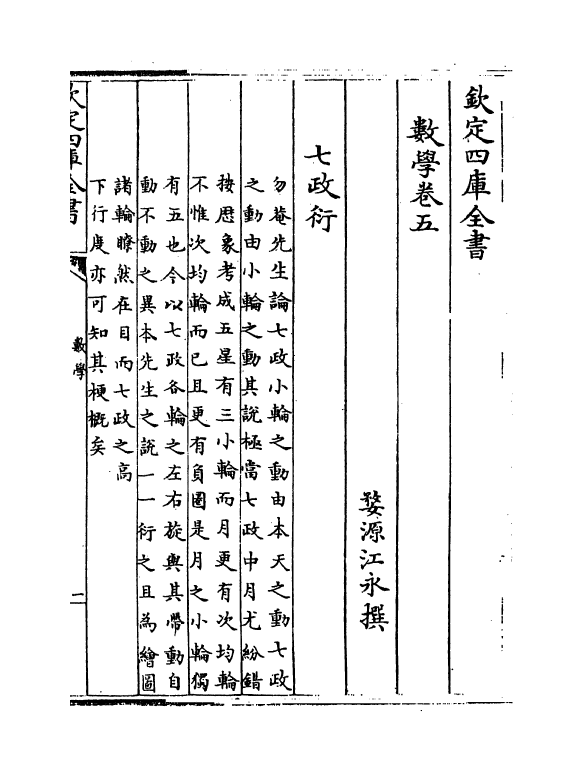 欽定四庫全書
數學卷五
婺源江永撰
七政衍
勿菴先生論七政小輪之動由本天之動七政
之動由小輪之動其説極當七政中月尤紛錯
按厯象考成五星有三小輪而月更有次均輪
不惟次均輪而已且更有負圈是月之小輪獨
有五也今以七政各輪之左右旋與其帶動自
動不動之異本先生之説一一衍之且為繪圖
諸輪瞭然在目而七政之高
下行度亦可知其梗概矣
欽定四庫全書
數學